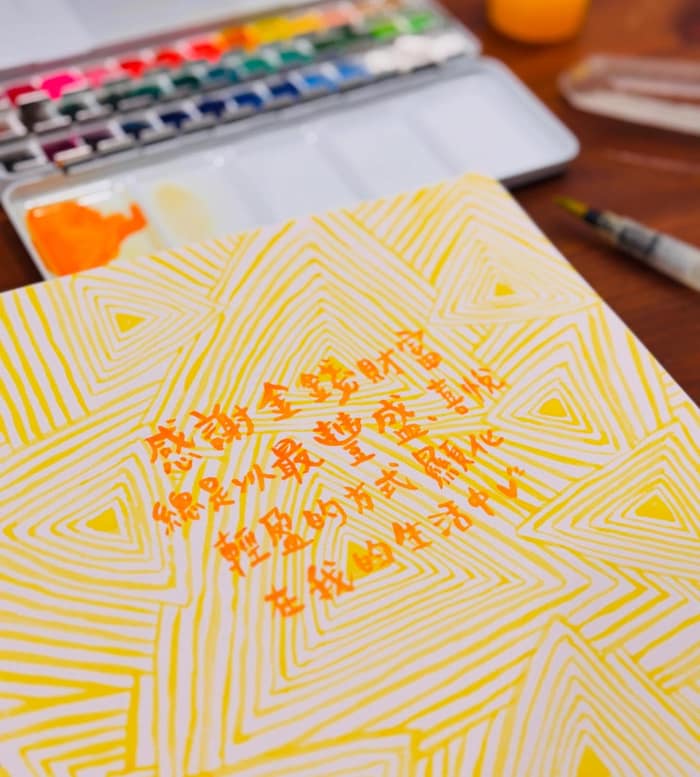 感謝金錢財富
總是以最豐盛、喜悅
輕盈的方式顯化
在我的生活中♡